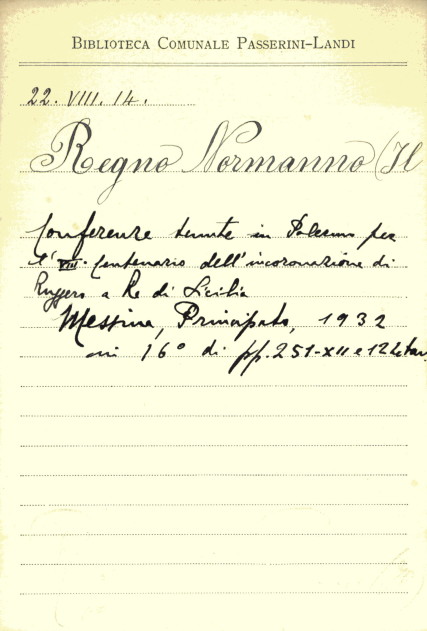 BIBLIOTECA COMUNALE PASSERINI-LANDI
22. VIII. 14.
Regno Normanno (Il
Conferenze tenute in Palermo per
l'VIII. Centenario dell'incoronazione di
Ruggero a Re di Sicilia
Messina, Principato, 1932
in 16° di pp. 251-XII e 12 tav